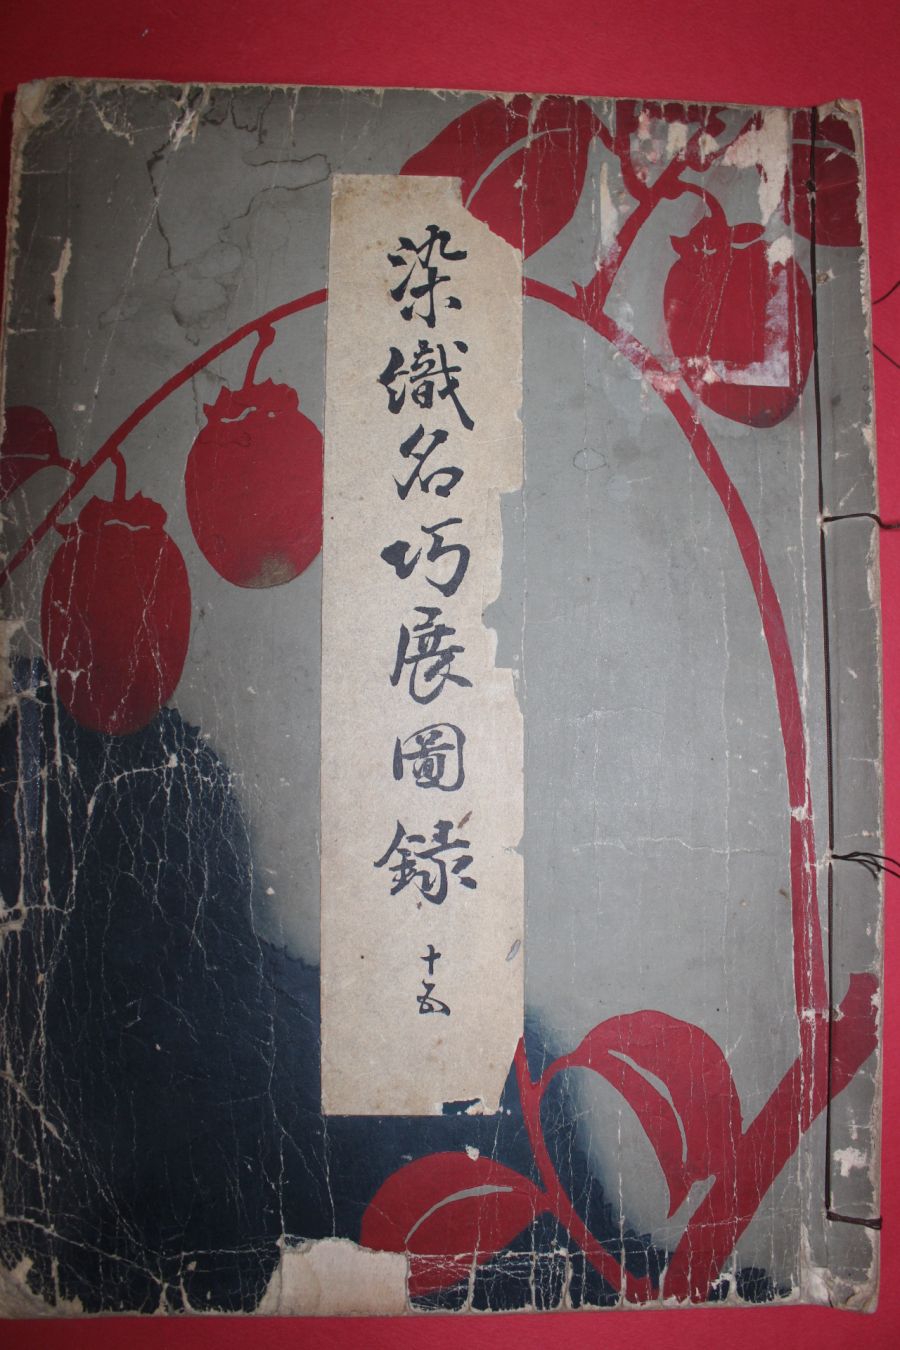 染織名巧展圖録
十五